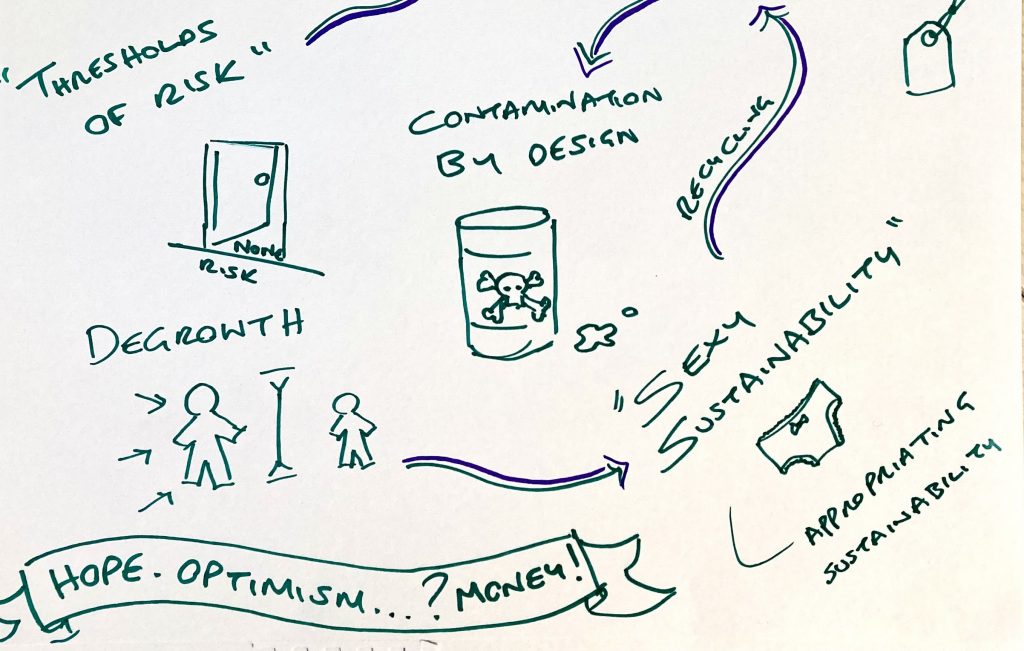 "THRESHOLDS
OF RISK"
CONTAMINATION
BY DESIGN
RECYCLING
NONE
RISK
DEGROWTH
"SEXY
SUSTAINABILITY"
APPROPRIATING
SUSTAINABILITY
HOPE. OPTIMISM...? MONEY!